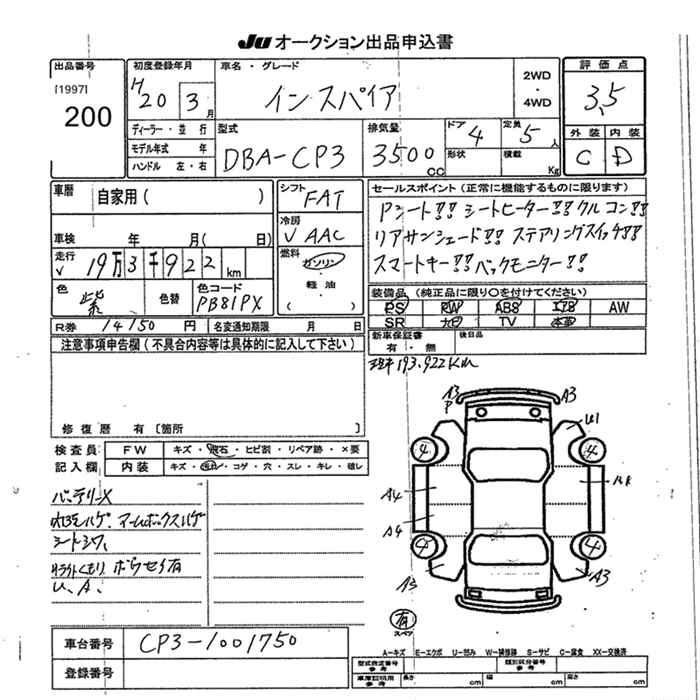 JU オークション出品申込書
出品番号
[1997]
200
初度登録年月
H20 3月
車名・グレード
インスパイア
2WD
・
4WD
評価点
3.5
ディーラー・並行
モデル年式 年
ハンドル 左・右
型式
DBA-CP3
排気量
3500 cc
ドア 4
形状
定員 5 人
積載 Kg
外装 内装
C D
車歴 自家用( )
車検 年 月( 日)
走行 V 19万3千922 km
色 紫 色替 色コード PB81PX
シフト FAT
冷房 V AAC
燃料 ガソリン
・
軽油
( )
セールスポイント(正常に機能するものに限ります)
Pシート!! シートヒーター!! クルコン!!
リアサンシェード!! ステアリングスイッチ!!
スマートキー!! バックモニター!!
装備品(純正品に限り○を付けてください)
PS RW ABS エアB AW
SR ナビ TV 本革
R券 14150 円 名変通知期限 月 日
新車保証書 有・無
後日品
注意事項申告欄(不具合内容等は具体的に記入して下さい)
193.922Km
修復歴 有〔箇所 〕
検査員 FW キズ・飛石・ヒビ割・リペア跡・×要
記入欄 内装 キズ・汚れ・コゲ・穴・スレ・キレ・破レ
バッテリーX
内張ハゲ、アームボックスハゲ
シートシワ、
ライトくもり、ボウセイ有
U、A、
A3
P
A3
U1
4
4
A4
A4
4
4
A3
A3
有
スペア
A-キズ E-エクボ U-凹み W-補修跡 S-サビ C-腐食 XX-交換済
車台番号 CP3-1001750
登録番号
型式指定番号 参考 類別区分番号 参考
車庫証明用 参考 長さ cm 幅 cm 高さ cm